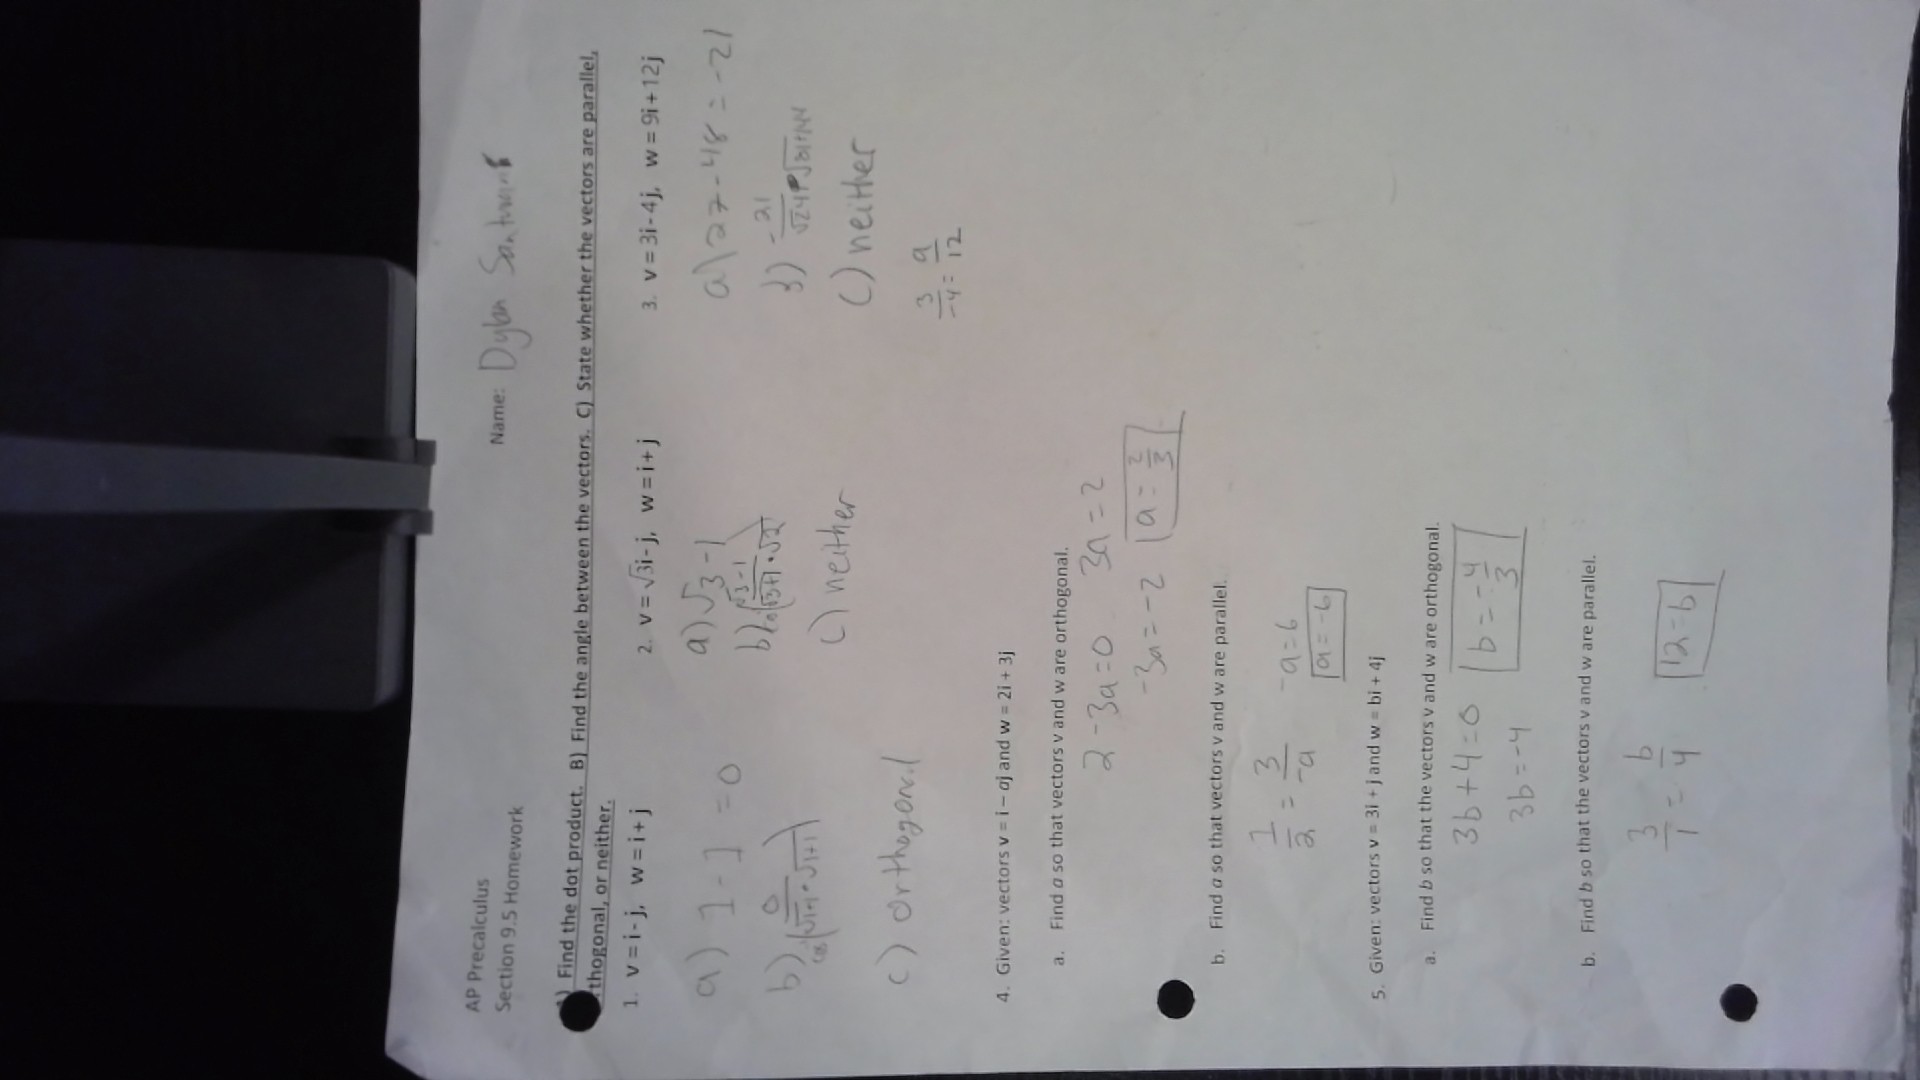 AP Precalculus
Section 9.5 Homework
Name: Dylan
Find the dot product. B) Find the angle between the vectors. C) State whether the vectors are parallel,
thogonal, or neither.
1. v = i - j, w = i + j
2. v = √3i - j, w = i + j
3. v = 3i - 4j, w = 9i + 12j
a) 1 - 1 = 0
a) √3 - 1
a) 27 - 48 = -21
b) 0 / √1+1 · √1+1
b) √3-1 / √3+1 · √2
-21
c) orthogonal
c) neither
c) neither
3/-4 = 9/12
4. Given: vectors v = i – aj and w = 2i + 3j
a. Find a so that vectors v and w are orthogonal.
2 - 3a = 0 3a = 2
-3a = -2 a = 2/3
b. Find a so that vectors v and w are parallel.
1/2 = 3/-a -a = 6
a = -6
5. Given: vectors v = 3i + j and w = bi + 4j
a. Find b so that the vectors v and w are orthogonal.
3b + 4 = 0 b = -4/3
3b = -4
b. Find b so that the vectors v and w are parallel.
3/1 = b/4 12 = b